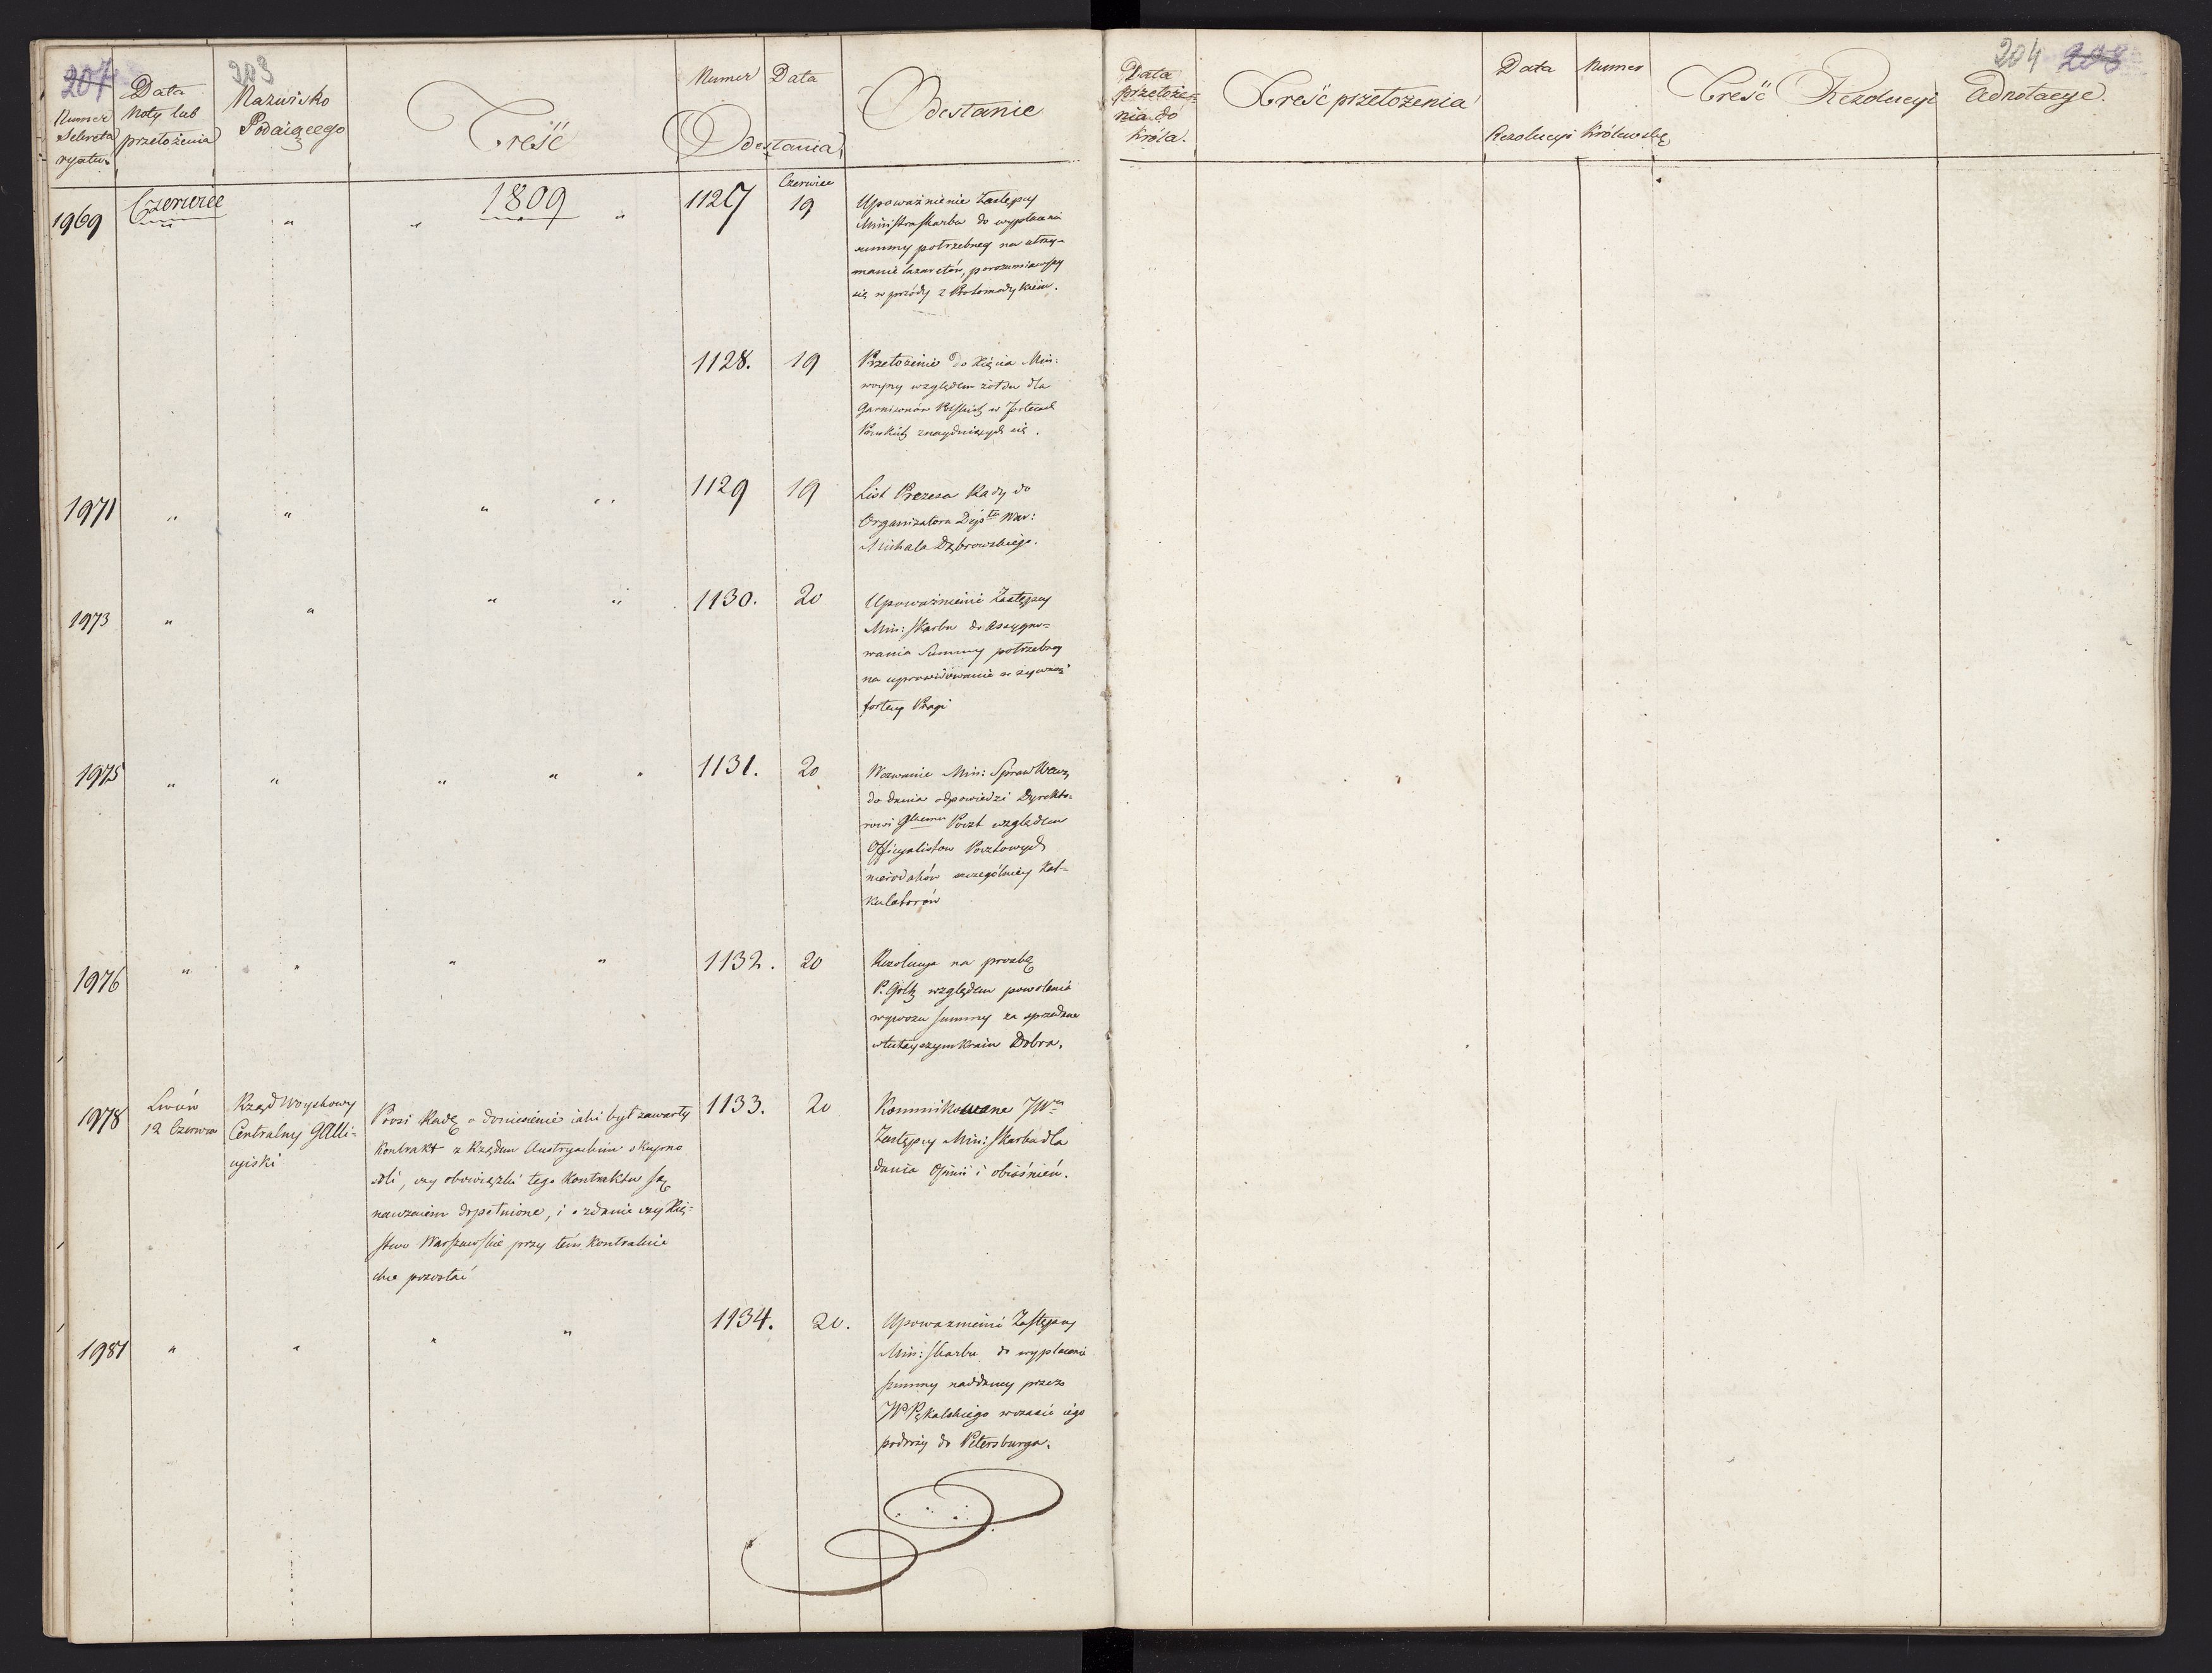 207
203
Numer
Sekreta
ryatu
Data
Noty lub
przełożenia
Nazwisko
Podaiącego
Treść
Numer Data
Odesłania
Odesłanie
1969 Czerwiec " " 1809 "
1127 Czerwiec 19
Upoważnienie Zastępcy
Ministra Skarbu do wypłacenia
summy potrzebney na utrzy=
manie lazaretów, porozumiawszy
się w przódy z Protomedykiem.
1128. 19
Przełożenie do Xięcia Min:
woyny względem żołdu dla
Garnizonów Polskich w fortecach
Pruskich znayduiących się.
1971 " " " "
1129 19
List Prezesa Rady do
Organizatora Depten War:
Michała Dąbrowskiego.
1973 " " " "
1130. 20
Upoważnienie Zastępcy
Min: Skarbu do assygno=
wania Summy potrzebney
na uprowidowanie w żywność
fortecy Pragi
1975 " " " " "
1131. 20
Wezwanie Min: Spraw Wew:
do dania odpowiedzi Dyrekto=
rowi Glnemu Poczt względem
Officyalistow Pocztowych
nierodaków szczególniey Kal=
kulatorów
1976 " " " "
1132. 20
Rezolucya na prozbę
P. Goltz względem powolenia
wywozu summy za sprzedane
w tuteyszym Kraiu Dobra.
1978 Lwów
12 Czerwca
Rząd Woyskowy
Centralny Galli=
cyiski
Prosi Radę o doniesienie iaki był zawarty
Kontrakt z Rządem Austryackim o kupno
soli, czy obowiązki tego Kontraktu są
nawzaiem dopełnione, i o zdanie czy Xię=
stwo Warszawskie przy tem Kontrakcie
chce pozostać
1133. 20
Kommunikowane JWu
Zastępcy Min: Skarbu dla
dania Opinii i obiaśnień.
1981 " " " "
1134. 20.
Upowaznienie Zastępcy
Min: Skarbu do wypłacenia
summy naddaney przez
JP. Pękalskiego w czasie iego
podroży do Petersburga.
204 208
Data
przełoże=
nia do
Króla.
Treść przełożenia
Data Numer
Rezolucyi Królewskiey
Treść Rezolucyi
Adnotacye.